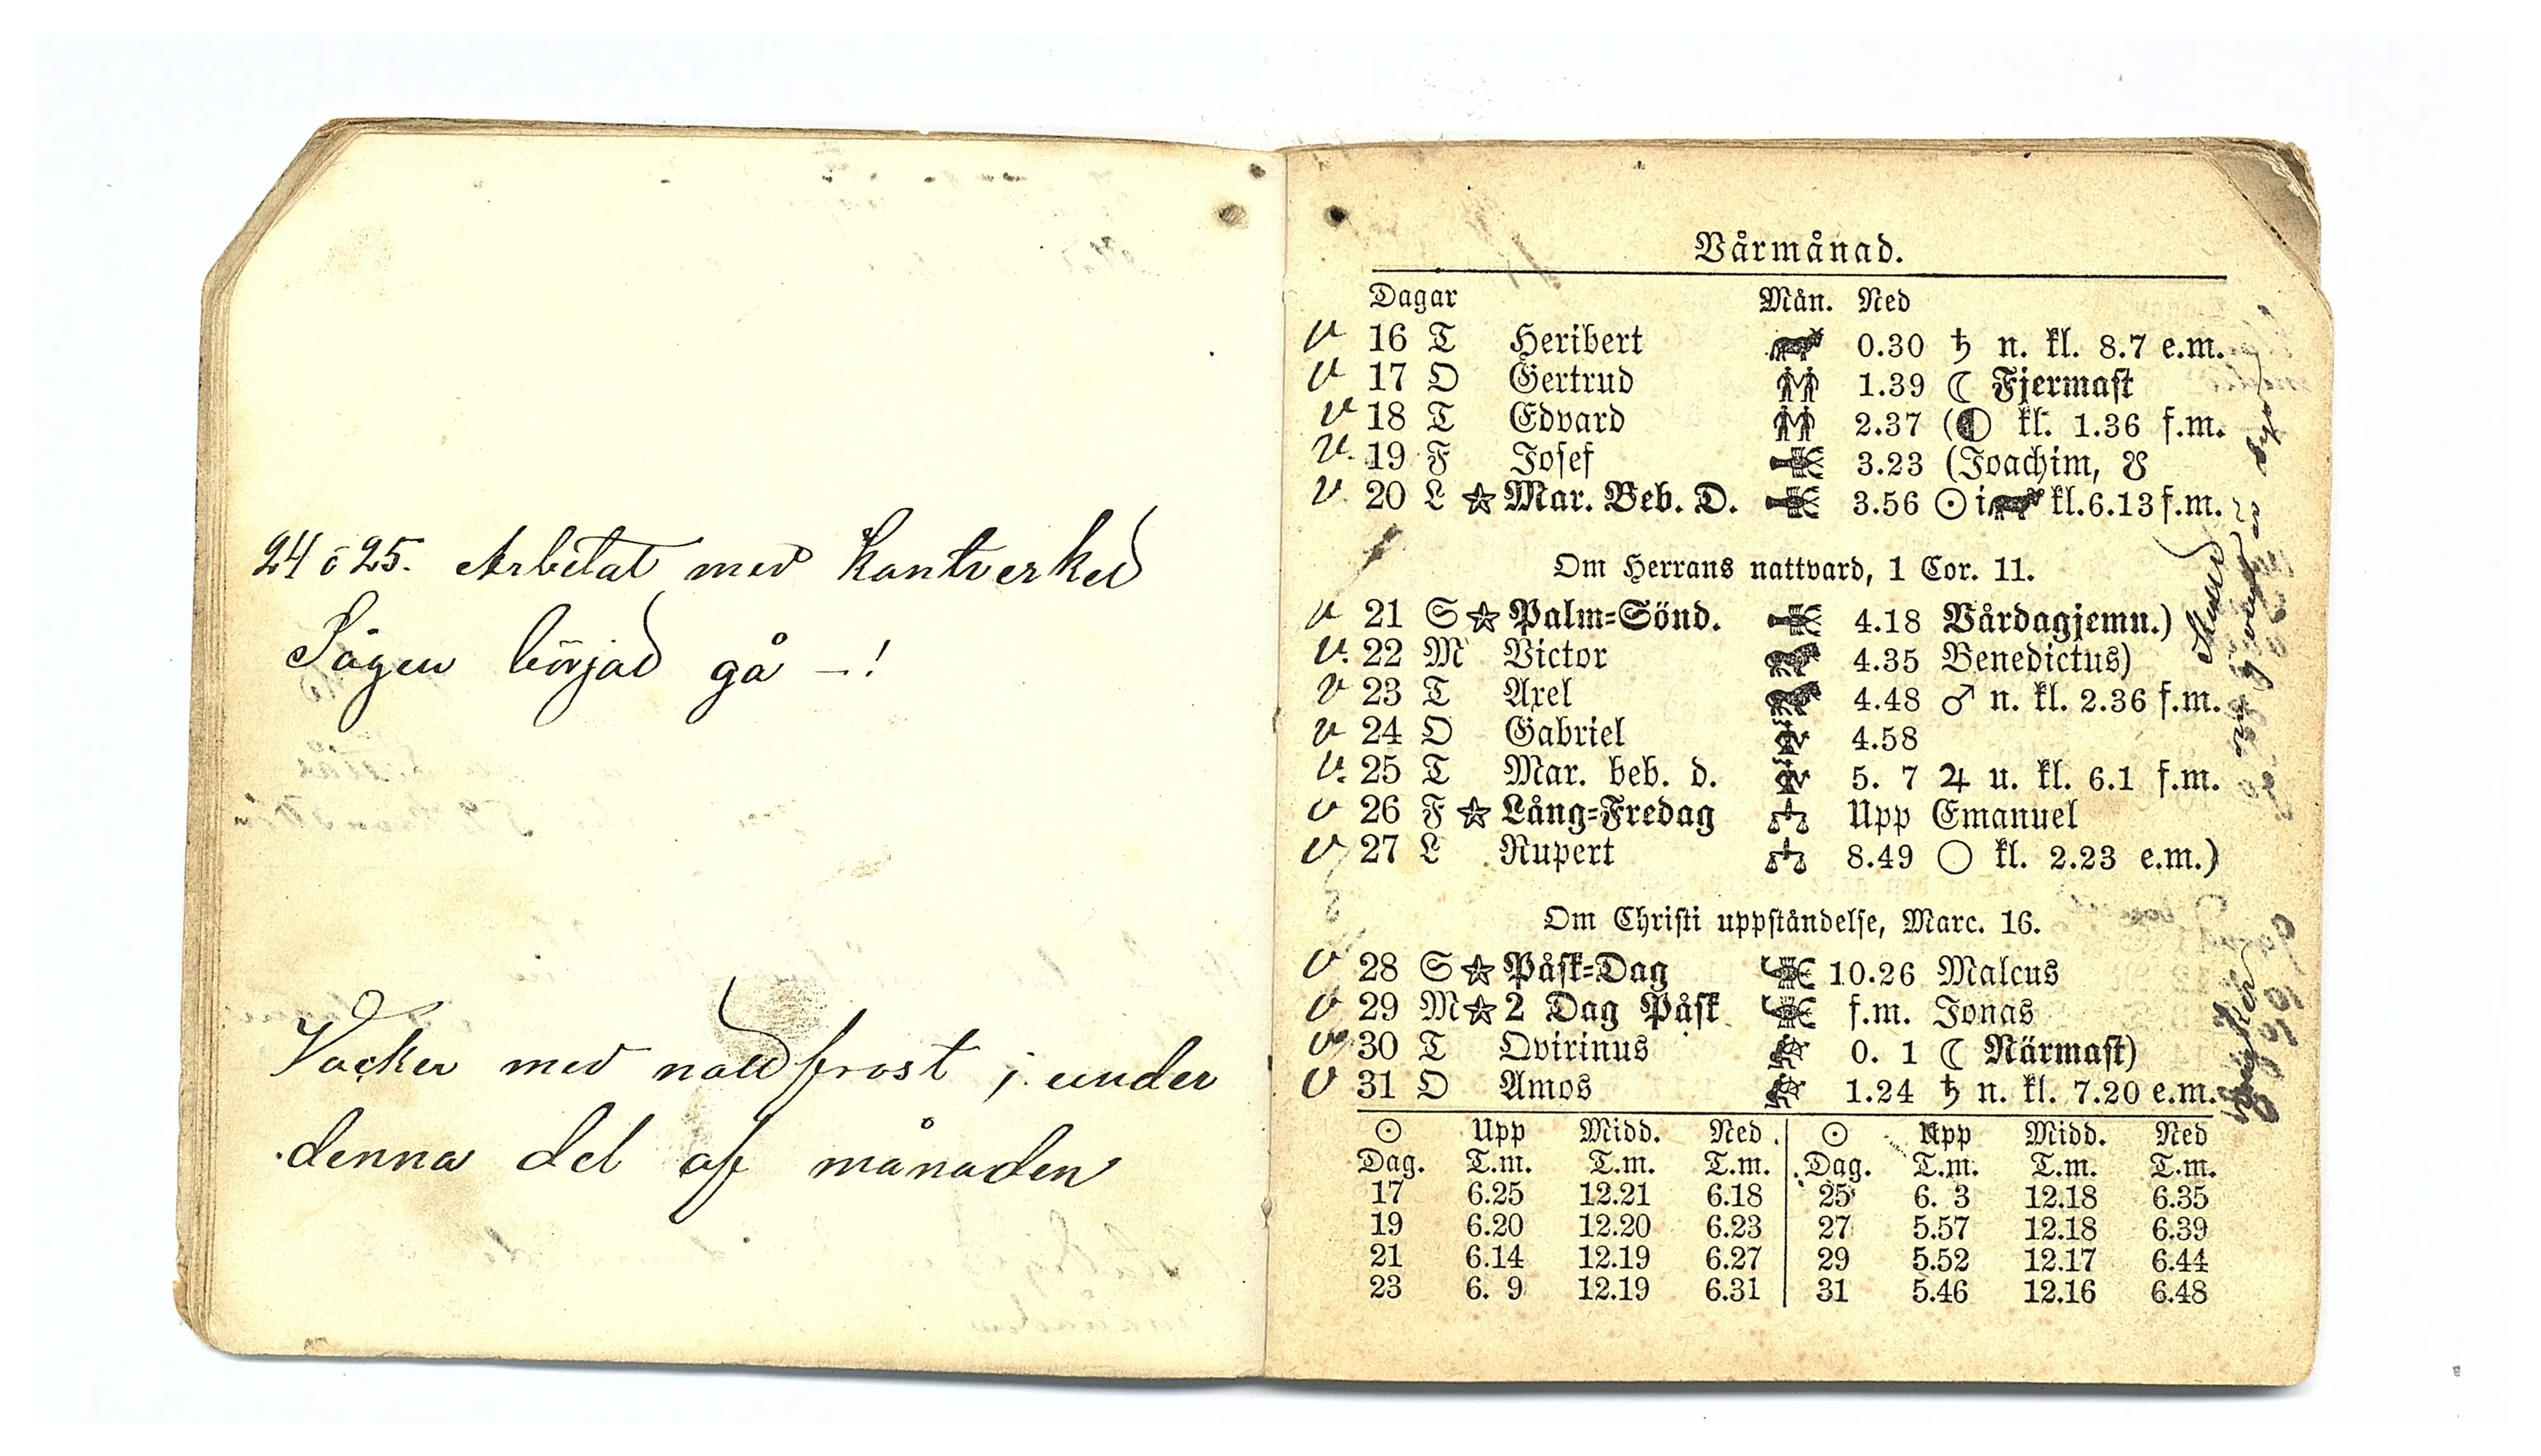 24 o 25. Arbetat med Kantverked
Sågen börjad gå – !
Vacker med nattfrost i under
denna del af månaden
Vårmånad.
Dagar Mån. Ned
v 16 T Heribert 0.30 ♄ n. kl. 8.7 e.m.
v 17 O Gertrud 1.39 ☾ Fjermast
v 18 T Edvard 2.37 (◐ kl. 1.36 f.m.
v. 19 F Josef 3.23 (Joachim, ☋
v. 20 L ☆ Mar. Beb. D. 3.56 ☉ i kl. 6.13 f.m.
Om Herrans nattvard, 1 Cor. 11.
v 21 S ☆ Palm=Sönd. 4.18 Vårdagjemn.)
v. 22 M Victor 4.35 Benedictus)
v 23 T Axel 4.48 ♂ n. kl. 2.36 f.m.
v 24 O Gabriel 4.58
v. 25 T Mar. beb. d. 5. 7 ♃ u. kl. 6.1 f.m.
v 26 F ☆ Lång=Fredag Upp Emanuel
v 27 L Rupert 8.49 ○ kl. 2.23 e.m.)
Om Christi uppståndelse, Marc. 16.
v 28 S ☆ Påsk=Dag 10.26 Malcus
v 29 M ☆ 2 Dag Påsk f.m. Jonas
v 30 T Qvirinus 0. 1 ☾ Närmast)
v 31 O Amos 1.24 ♄ n. kl. 7.20 e.m.
☉ Upp Midd. Ned ☉ Upp Midd. Ned
Dag. T.m. T.m. T.m. Dag. T.m. T.m. T.m.
17 6.25 12.21 6.18 25 6. 3 12.18 6.35
19 6.20 12.20 6.23 27 5.57 12.18 6.39
21 6.14 12.19 6.27 29 5.52 12.17 6.44
23 6. 9 12.19 6.31 31 5.46 12.16 6.48